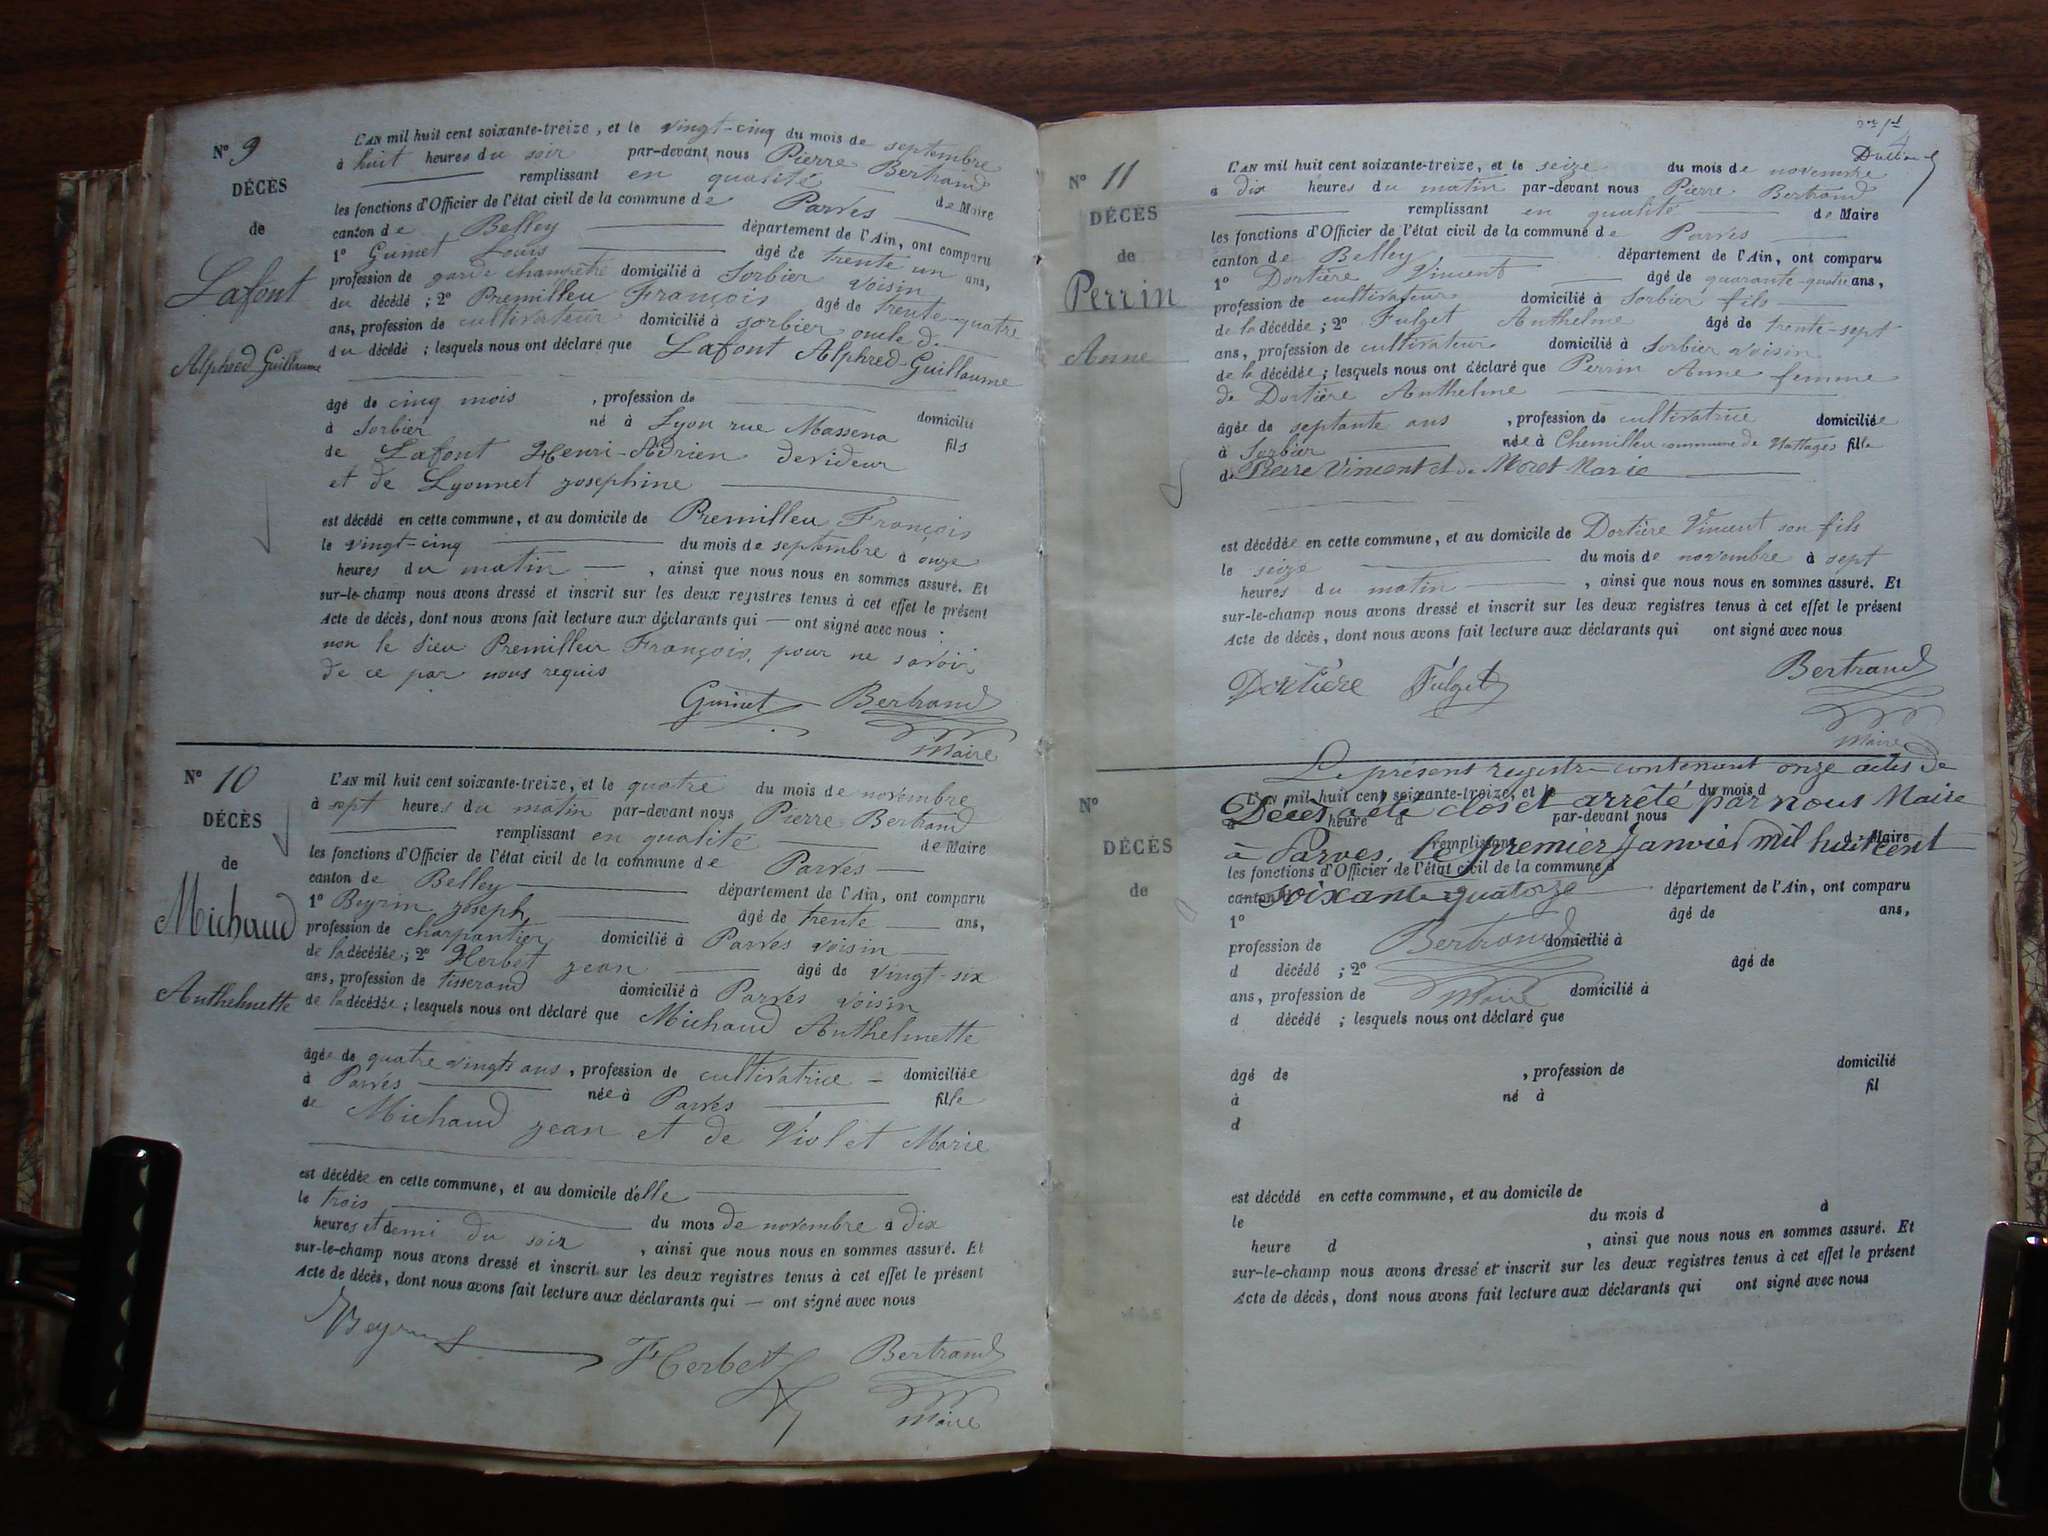 N° 9
DÉCÈS
de
Lafont
Alphred Guillaume
L'AN mil huit cent soixante-treize, et le vingt-cinq du mois de septembre
à huit heures du soir par-devant nous Pierre Bertrand
remplissant en qualité de Maire
les fonctions d'Officier de l'état civil de la commune de Parves
canton de Belley département de l'Ain, ont comparu
1° Guinet Louis âgé de trente un ans,
profession de garde champêtre domicilié à Sorbier voisin
du décédé ; 2° Premilleu François âgé de trente-quatre
ans, profession de cultivateur domicilié à sorbier oncle d.
du décédé ; lesquels nous ont déclaré que Lafont Alphred-Guillaume
âgé de cinq mois , profession de
à Sorbier né à Lyon rue Massena domicilié
de Lafont Henri-Adrien devideur fils
et de Lyonnet josephine
est décédé en cette commune, et au domicile de Premilleu François
le vingt-cinq du mois de septembre à onze
heures du matin , ainsi que nous nous en sommes assuré. Et
sur-le-champ nous avons dressé et inscrit sur les deux registres tenus à cet effet le présent
Acte de décès, dont nous avons fait lecture aux déclarants qui ont signé avec nous :
non le sieu Premilleu François, pour ne savoir
de ce par nous requis
Guinet Bertrand
Maire
N° 10
DÉCÈS
de
Michaud
Anthelmette
L'AN mil huit cent soixante-treize, et le quatre du mois de novembre
à sept heures du matin par-devant nous Pierre Bertrand
remplissant en qualité de Maire
les fonctions d'Officier de l'état civil de la commune de Parves
canton de Belley département de l'Ain, ont comparu
1° Beyrin joseph âgé de trente ans,
profession de charpantier domicilié à Parves voisin
de la décédée ; 2° Herbet jean âgé de vingt-six
ans, profession de tisserand domicilié à Parves voisin
de la décédée ; lesquels nous ont déclaré que Michaud Anthelmette
âgée de quatre vingts ans , profession de cultivatrice domiciliée
à Parves née à Parves fille
de Michaud jean et de Violet Marie
est décédée en cette commune, et au domicile d'elle
le trois du mois de novembre à dix
heures et demi du soir , ainsi que nous nous en sommes assuré. Et
sur-le-champ nous avons dressé et inscrit sur les deux registres tenus à cet effet le présent
Acte de décès, dont nous avons fait lecture aux déclarants qui ont signé avec nous
Herbet Bertrand
Maire
N° 11
DÉCÈS
de
Perrin
Anne
L'AN mil huit cent soixante-treize, et le seize du mois de novembre
à dix heures du matin par-devant nous Pierre Bertrand
remplissant en qualité de Maire
les fonctions d'Officier de l'état civil de la commune de Parves
canton de Belley département de l'Ain, ont comparu
1° Dortière Vincent âgé de quarante-quatre ans,
profession de cultivateur domicilié à Sorbier fils
de la décédée ; 2° Fulget Anthelme âgé de trente-sept
ans, profession de cultivateur domicilié à Sorbier voisin
de la décédée ; lesquels nous ont déclaré que Perrin Anne femme
de Dortière Anthelme
âgée de septante ans , profession de cultivatrice domiciliée
à Sorbier née à Chemilleu commune de Nattages fille
de Pierre Vincent et de Moret Marie
est décédée en cette commune, et au domicile de Dortière Vincent son fils
le seize du mois de novembre à sept
heures du matin , ainsi que nous nous en sommes assuré. Et
sur-le-champ nous avons dressé et inscrit sur les deux registres tenus à cet effet le présent
Acte de décès, dont nous avons fait lecture aux déclarants qui ont signé avec nous
Dortière Fulget Bertrand
Maire
Le présent registre contenant onze actes de
Décès a été clos et arrêté par nous Maire
à Parves, le premier Janvier mil huit cent
soixante quatorze
Bertrand
Maire
N°
DÉCÈS
de
L'AN mil huit cent soixante-treize, et le du mois d
à heure d par-devant nous
remplissant d Maire
les fonctions d'Officier de l'état civil de la commune d
canton d département de l'Ain, ont comparu
1° âgé de ans,
profession de domicilié à
d décédé ; 2° âgé de
ans, profession de domicilié à
d décédé ; lesquels nous ont déclaré que
âgé de , profession de domicilié
à né à fil
d
est décédé en cette commune, et au domicile de
le du mois d à
heure d , ainsi que nous nous en sommes assuré. Et
sur-le-champ nous avons dressé et inscrit sur les deux registres tenus à cet effet le présent
Acte de décès, dont nous avons fait lecture aux déclarants qui ont signé avec nous